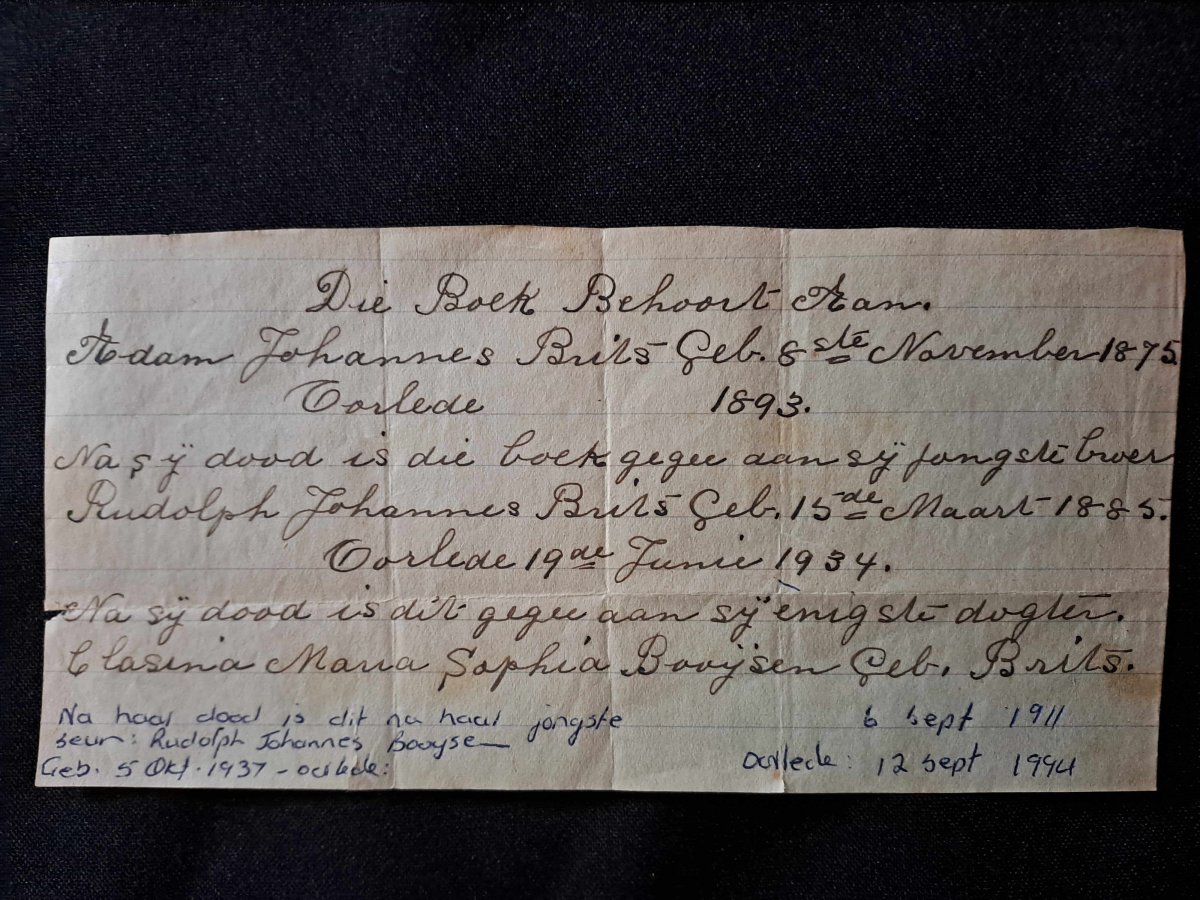 Die Boek Behoort Aan.
Adam Johannes Brits Geb. 8ste November 1875.
Oorlede 1893.
Na sÿ dood is die boek gegee aan sÿ jongste broer
Rudolph Johannes Brits Geb. 15de Maart 1885.
Oorlede 19de Junie 1934.
Na sÿ dood is dit gegee aan sÿ enigste dogter.
Clasina Maria Sophia Booÿsen Geb. Brits.
Na haar dood is dit na haar jongste 6 Sept 1911
seun: Rudolph Johannes Booysen
Geb. 5 Okt. 1937 - oorlede: Oorlede: 12 Sept 1994